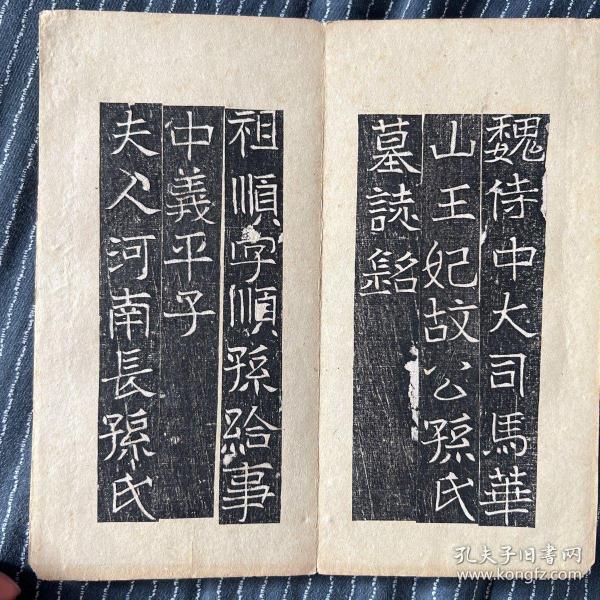 魏侍中大司馬華
山王妃故公孫氏
墓誌銘
祖順字順孫給事
中義平子
夫人河南長孫氏
孔夫子旧书网
www.kongfz.com